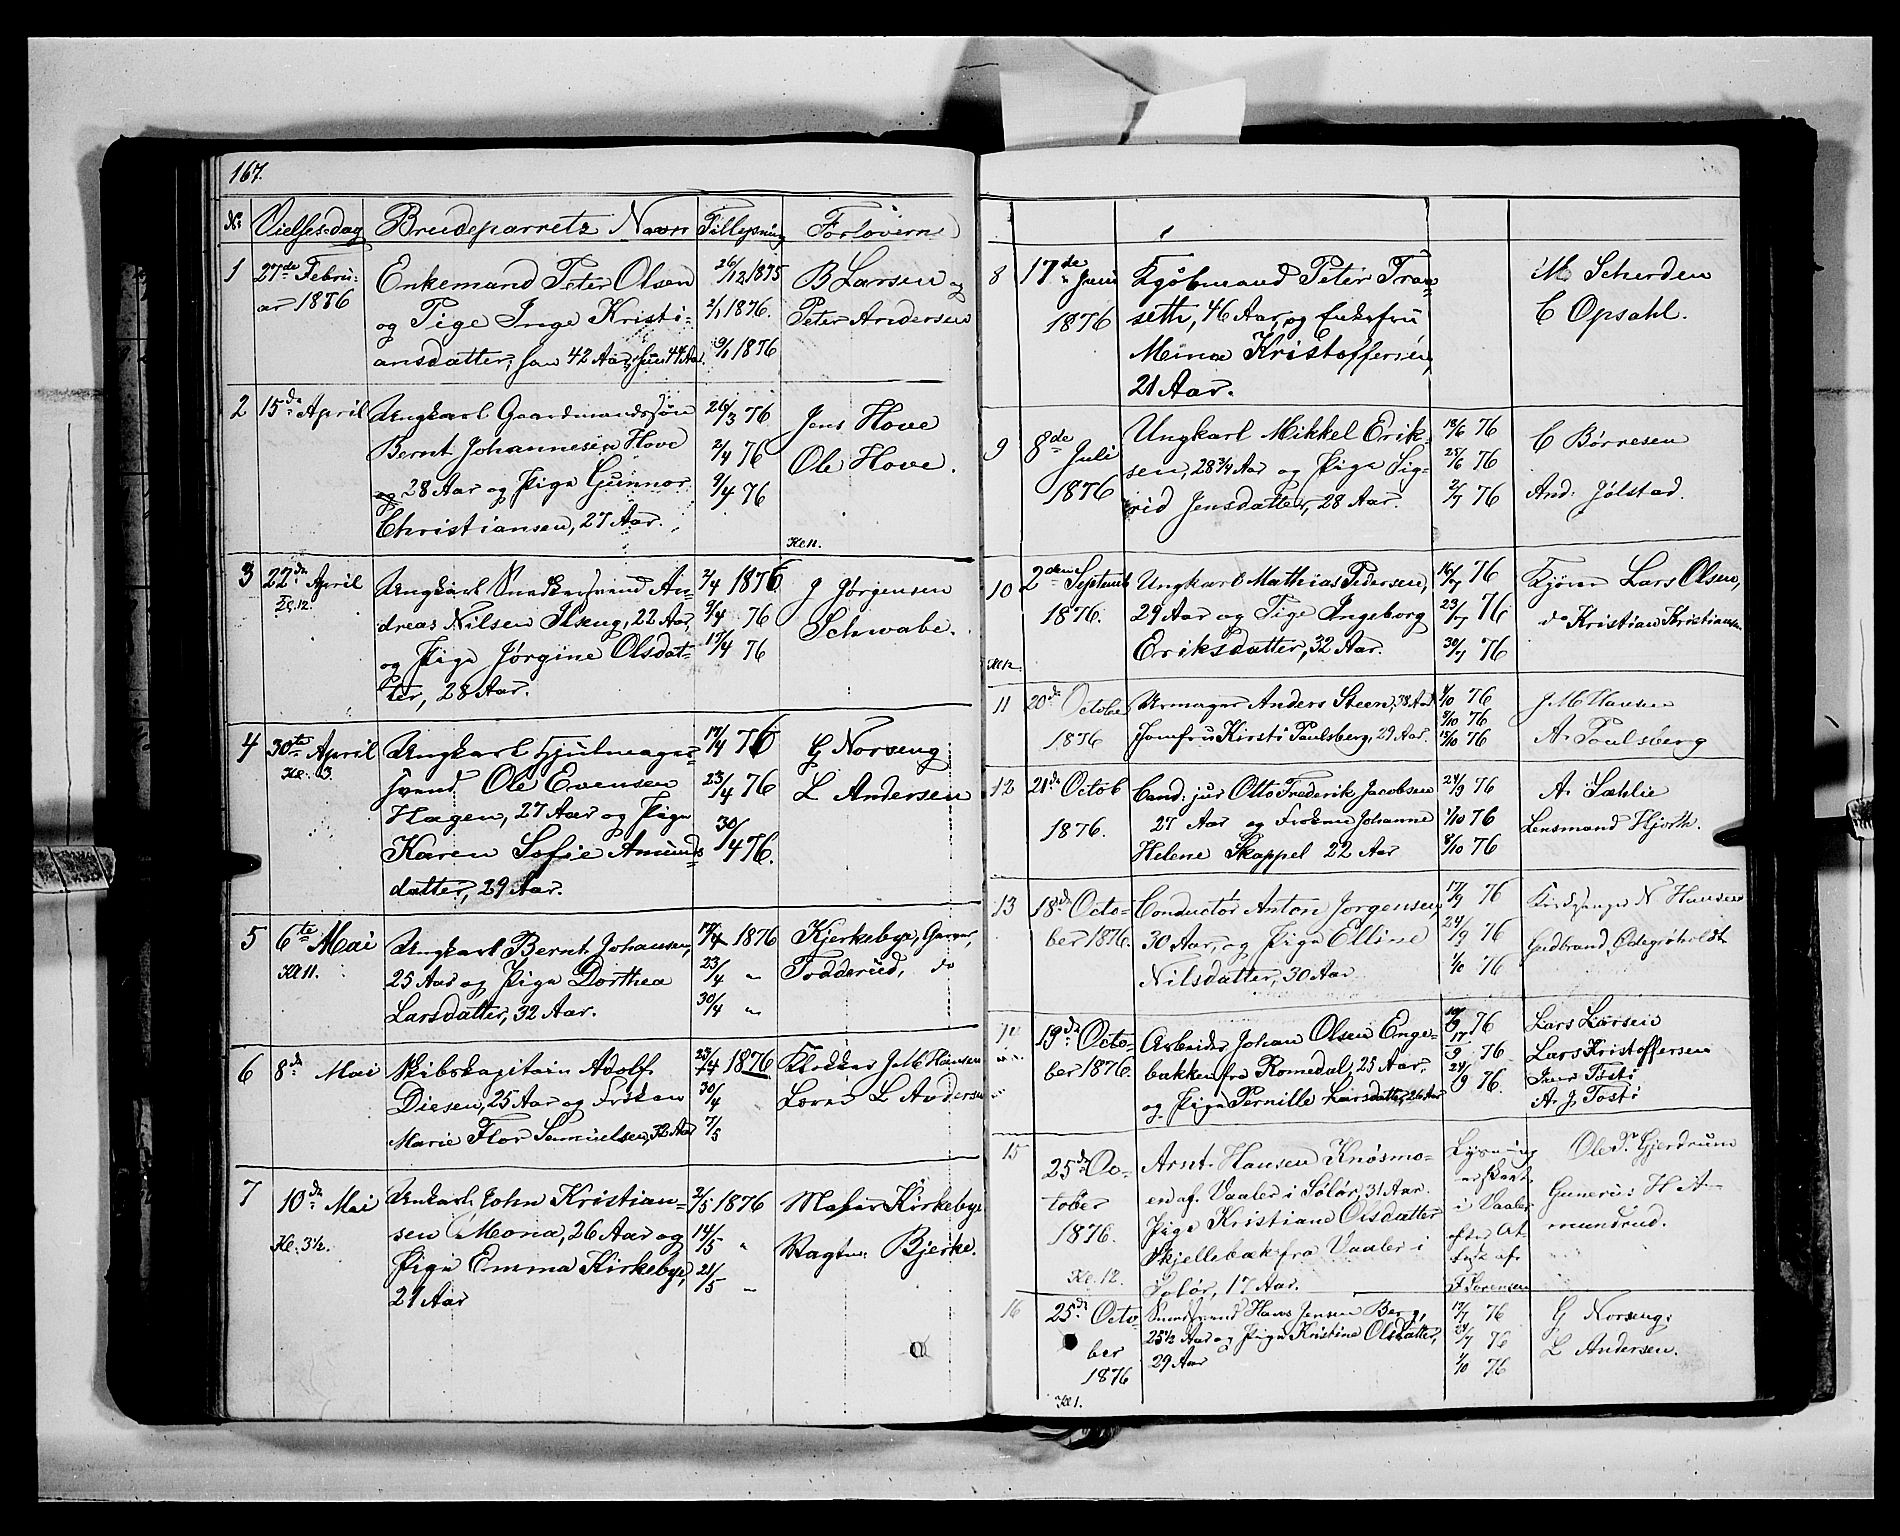 167.
No Vielses-dag Brudeparrets Navn Tillysning Forlovere
1 27de Febru-
ar 1876
Enkemand Peter Olsen
og Pige Inge Kristi-
ansdatter, han 42 Aar, hun 44 Aar.
26/12 1875
2/1 1876.
9/1 1876
B Larsen og
Peter Andersen
2 15de April
Ungkarl Gaardmandssøn
Bernt Johannesen Hove
og 28 Aar og Pige Gunnor
Christiansen, 27 Aar.
26/3 76
2/4 76
9/4 76
Jens Hove
Ole Hove.
Kl 11.
3 22de April
Kl. 12.
Ungkarl Snedkersvend An-
dreas Nilsen Ilseng, 22 Aar,
og Pige Jørgine Olsdat-
ter, 28 Aar.
2/4 1876
9/4 76
17/4 76
J Jørgensen
Schwabe.
4 30te April
Kl. 3.
Ungkarl Hjulmager-
svend Ole Evensen
Hagen, 27 Aar og Pige
Karen Sofie Amunds-
datter, 29 Aar.
17/4 76
23/4 76
30/4 76.
G Norseng
L Andersen
5 6te Mai
Kl 11.
Ungkarl Bernt Johansen,
25 Aar og Pige Dorthea
Larsdatter, 32 Aar.
17/4 1876
23/4 "
30/4 "
Kjerkebye, Garver,
Fodderud, do
6 8de Mai
Skibskapitain Adolf
Diesen, 25 Aar og Frøken
Marie Flor Samuelsen, 32 Aar
23/4 1876
30/4
7/5
Klokker J M Hansen
Lærer L Andersen
7 10de Mai
Kl. 3½.
Unkarl John Kristian-
sen Moria, 26 Aar og
Pige Emma Kirkebye,
21 Aar
2/5 1876
14/5 "
21/5 "
Maler Kirkebye
Vagtm: Bjerke.
8 17de Juni
1876
Kjøbmand Peter Tran-
seth, 46 Aar, og Enkefru
Mina Kristoffersen,
21 Aar.
M Scherden
C Opsahl.
9 8de Juli
1876
Ungkarl Mikkel Erik-
sen, 28 3/4 Aar og Pige Sig-
rid Jensdatter, 28 Aar.
18/6 76
25/6 76
2/7 76
C Børresen
And: Jølstad.
10 2den Septemb
1876.
Kl 12.
Ungkarl Mathias Pedersen,
29 Aar og Pige Ingeborg
Eriksdatter, 32 Aar.
16/7 76
23/7 76
30/7 76
Lars Olsen,
do Kristian Kristiansen.
11 20de October
1876
Urmager Anders Steen, 38 Aar
Jomfru Kirsti Paulsberg, 29 Aar.
1/10 76
8/10 76
15/10 76
J M Hansen
A. Paulsberg
12 21de Octob
1876.
Cand: jur Otto Frederik Jacobsen
27 Aar og Frøken Johanne
Helene Skappel 22 Aar
24/9 76
1/10 76
8/10 76
A. Sæhlie
Lensmand Hjorth.
13 18de Octo-
ber 1876.
Conductør Anton Jørgensen,
30 Aar, og Pige Elline
Nilsdatter, 30 Aar
17/9 76
24/9 76
1/10 76
N Hansen
Gudbrand Ødegrdholdt
14 19de Octo-
ber 1876.
Arbeider Johan Olsen Enge-
bakken fra Romedal, 25 Aar,
og Pige Pernille Larsdatter, 26 Aar
10/9 76
17/9 76
24/9 76.
Lars Larsen
Lars Kristoffersen
Iver Tosti
A. J. Tosti
15 25de Oc-
tober
1876.
Kl. 12.
Arnt Hansen Knøsmo-
en af Vaaler i Solør, 31 Aar.
Pige Kristiane Olsdatter
Skjellebæk fra Vaaler i
Solør, 17 Aar.
Lysning
er skeet
i Vaaler
efter At-
test af
F Sørensen
Ole P. Gjerdrum
Gunerius H A-
mundrud.
16 25de Octo-
ber
1876
Kl 1.
Smedsvend Hans Jensen Berg,
25½ Aar og Pige Kristine Olsdatter,
29 Aar
17/7 76
24/7 76
1/10 76
G Norseng.
L Andersen.